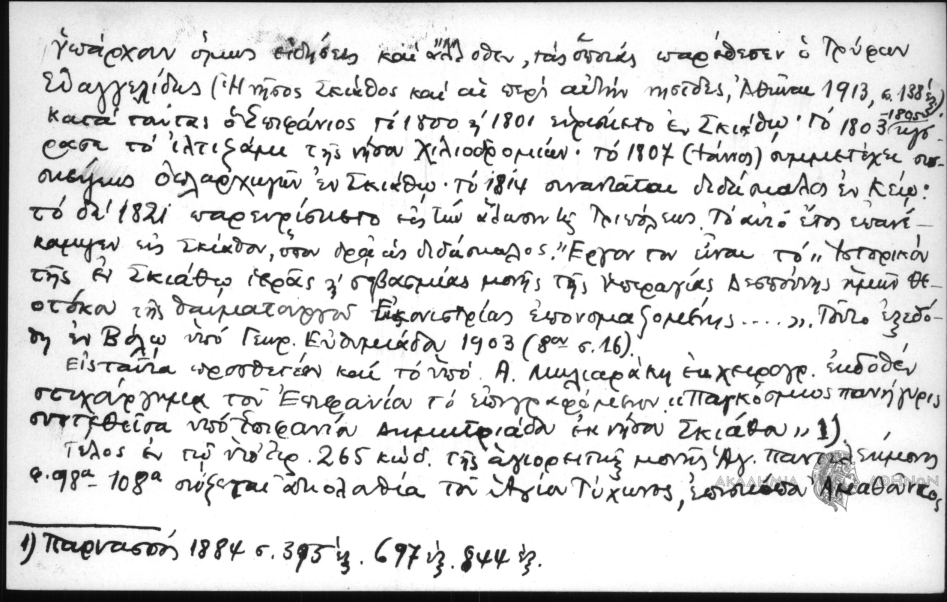 ὑπάρχουν ὅμως εἰδήσεις καὶ ἄλλοθεν, τὰς ὁποίας παρέθεσεν ὁ Τρύφων
Εὐαγγελίδης (Ἡ νῆσος Σκίαθος καὶ αἱ περὶ αὐτὴν νησῖδες, Ἀθῆναι 1913, σ. 138 ἑξ)
Κατὰ ταύτας ὁ Ἐπιφάνιος τὸ 1800 ἢ 1801 εὑρίσκετο ἐν Σκιάθῳ· τὸ 1803-1805
ρασε τὸ ἰλτιζάμι τῆς νήσου Χιλιοδρομίων· τὸ 1807 (
σκέψεως ὁπλαρχηγῶν ἐν Σκιάθῳ· τὸ 1814 συναντᾶται διδάσκαλος ἐν Κέῳ·
τὸ δὲ 1821 παρευρίσκετο εἰς τὴν ἅλωσιν τῆς Τριπόλεως. Τὸ αὐτὸ ἔτος ἐπανέ-
καμψεν εἰς Σκίαθον, ὅπου δρᾷ ὡς διδάσκαλος. Ἔργον του εἶναι τὸ „Ἱστορικὸν
τῆς ἐν Σκιάθῳ ἱερᾶς κ' σεβασμίας μονῆς τῆς Ὑπεραγίας Δεσποίνης ἡμῶν Θε-
οτόκου τῆς θαυματουργοῦ Εἰκονιστρίας ἐπονομαζομένης....». Τοῦτο ἐξεδό-
θη ἐν Βόλῳ ὑπὸ Γεωρ. Εὐθυμιάδου 1903 (8ον σ. 16).
Εἰς ταῦτα προσθετέον καὶ τὸ ὑπὸ Α. Μηλιαράκη ἐκ χειρογρ. ἐκδοθὲν
στιχούργημα τοῦ Ἐπιφανίου τὸ ἐπιγραφόμενον „Παγκόσμιος πανήγυρις
συντεθεῖσα ὑπὸ Ἐπιφανίου Δημητριάδου ἐκ νήσου Σκιάθου» 1).
Τέλος ἐν τῷ ὑπ' ἀρ. 265 κώδ. τῆς ἁγιορειτικῆς μονῆς Ἁγ. Παντελεήμονος
φ. 98α-108α σώζεται ἀκολουθία τοῦ ἁγίου Τύχωνος, ἐπισκόπου Ἀμαθοῦντος
ΑΚΑΔΗΜΙΑ ΑΘΗΝΩΝ
1) Παρνασσός 1884 σ. 395 ἑξ. 697 ἑξ. 844 ἑξ.